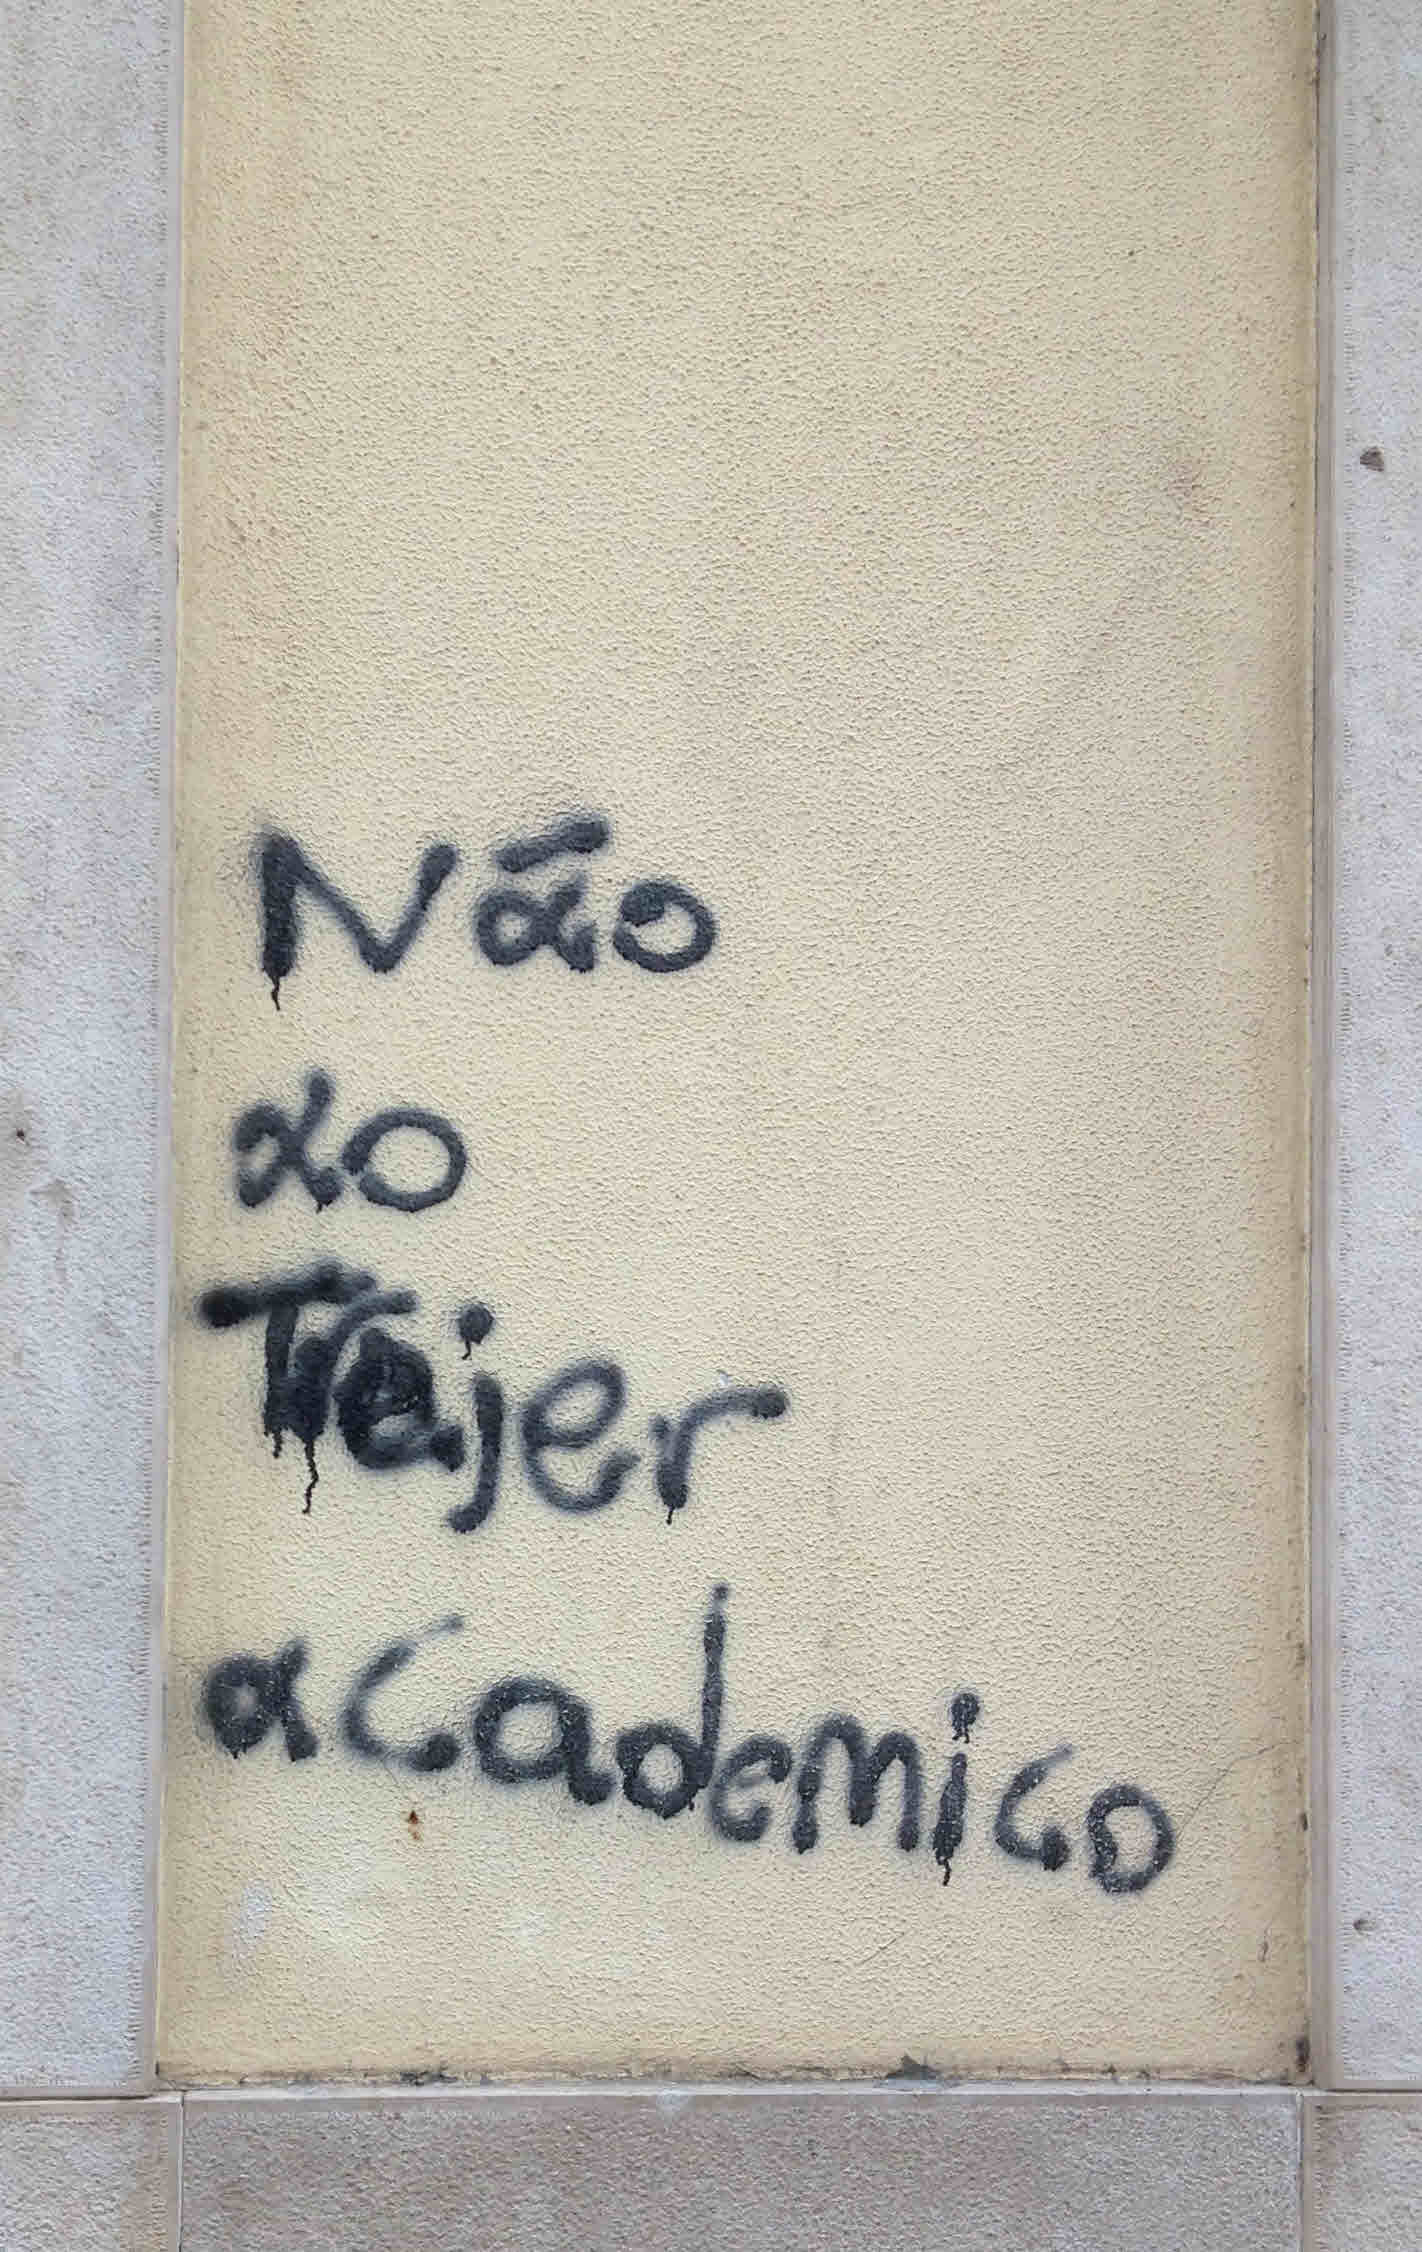 Não
ao
Trajer
academico